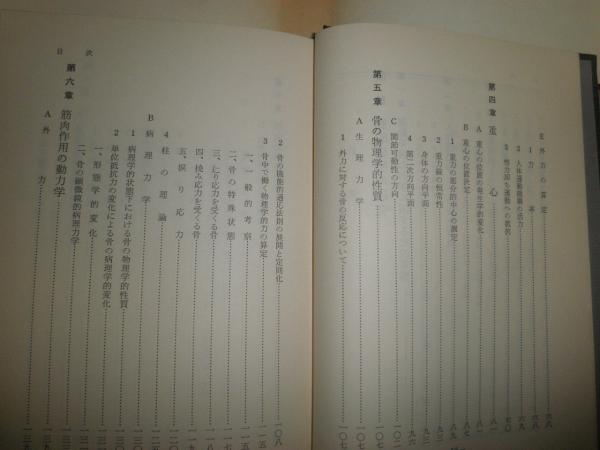 E 外力の算定……六八
1 力率……六八
2 人体運動機構の活力……六九
3 他力即ち運動への抵抗……七〇
第四章 重心……八一
A 重心の位置の発生学的変化
B 重心の位置決定
1 重力の部分的中心の測定
2 重力線の恒常性
3 身体の方向平面……九三
4 第二次方向平面……九六
C 関節可動性の方向……一〇一
第五章 骨の物理学的性質……一〇七
A 生理力学……一〇七
1 外力に対する骨の反応について……一〇七
2 骨の機能的適応法則の展開と定則化……一〇八
3 骨中で働く物理学的力の算定……一一五
一、一般的考察
二、骨の特殊状態
三、辷り応力を受くる骨
四、撓み応力を受くる骨
五、捩り応力
4 柱の理論
B 病理力学
1 病理学的状態下における骨の物理学的性質
2 単位抵抗力の変化による骨の病理学的変化
一、形態学的変化
二、骨の顕微鏡的病理力学
第六章 筋肉作用の動力学
A 外力
目次